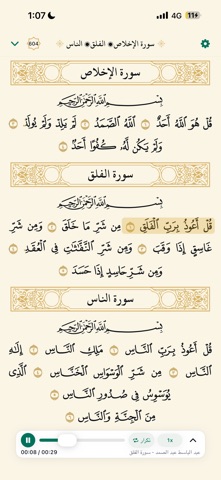 1:07
4G 11
604 سورة الإخلاص ۞ الفلق ۞ الناس
سورة الإخلاص
بِسْمِ اللَّهِ الرَّحْمَٰنِ الرَّحِيمِ
قُلْ هُوَ اللَّهُ أَحَدٌ ١ اللَّهُ الصَّمَدُ ٢ لَمْ يَلِدْ وَلَمْ يُولَدْ ٣
وَلَمْ يَكُن لَّهُ كُفُوًا أَحَدٌ ٤
سورة الفلق
بِسْمِ اللَّهِ الرَّحْمَٰنِ الرَّحِيمِ
قُلْ أَعُوذُ بِرَبِّ الْفَلَقِ ١ مِن شَرِّ مَا خَلَقَ ٢ وَمِن شَرِّ
غَاسِقٍ إِذَا وَقَبَ ٣ وَمِن شَرِّ النَّفَّاثَاتِ فِي الْعُقَدِ ٤
وَمِن شَرِّ حَاسِدٍ إِذَا حَسَدَ ٥
سورة الناس
بِسْمِ اللَّهِ الرَّحْمَٰنِ الرَّحِيمِ
قُلْ أَعُوذُ بِرَبِّ النَّاسِ ١ مَلِكِ النَّاسِ ٢ إِلَٰهِ
النَّاسِ ٣ مِن شَرِّ الْوَسْوَاسِ الْخَنَّاسِ ٤ الَّذِي
يُوَسْوِسُ فِي صُدُورِ النَّاسِ ٥
مِنَ الْجِنَّةِ وَالنَّاسِ ٦
تكرار 1x
00:08 / 00:29 عبد الباسط عبد الصمد - سورة الفلق